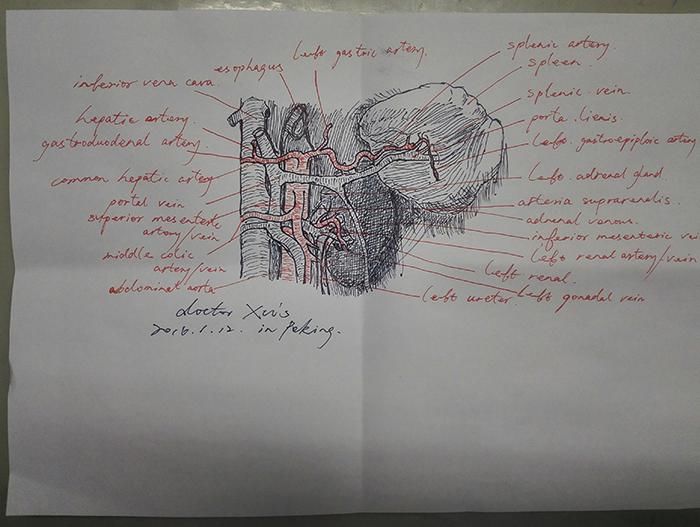 esophagus
left gastric artery.
inferior vena cava.
hepatic artery.
gastroduodenal artery.
common hepatic artery
portal vein
superior mesenteric
artery/vein
middle colic
artery/vein
abdominal aorta
splenic artery.
spleen.
splenic vein.
porta lienis.
left gastroepiploic artery
left adrenal gland.
arteria suprarenalis.
adrenal venous.
inferior mesenteric vei
left renal artery/vein
left renal.
left ureter
left gonadal vein
doctor Xu's
2016.1.12. in Peking.